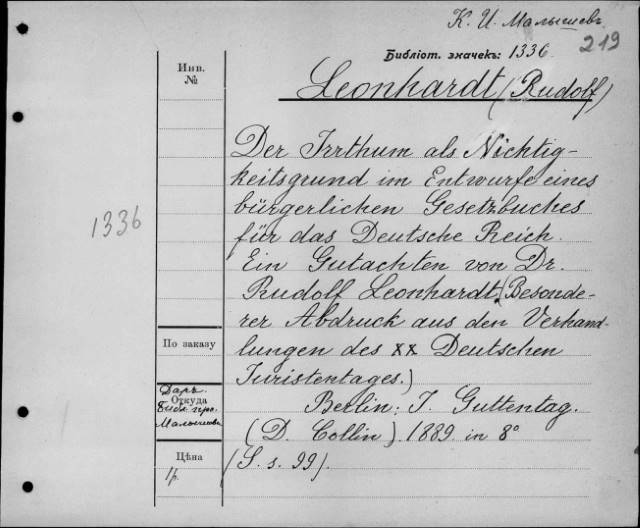 К. И. Малышевъ
219
Библіот. значекъ: 1336.
Leonhardt (Rudolf)
Инв.
№
1336
Der Irrthum als Nichtig-
keitsgrund im Entwurfe eines
bürgerlichen Gesetzbuches
für das Deutsche Reich.
Ein Gutachten von Dr.
Rudolf Leonhardt. (Besonde-
rer Abdruck aus den Verhand-
lungen des XX Deutschen
Juristentages.)
Berlin: J. Guttentag.
(D. Collin). 1889. in 8°
(S. s. 99).
По заказу
Даръ
Откуда
Библ. про.
Малышева
Цѣна
1 р.